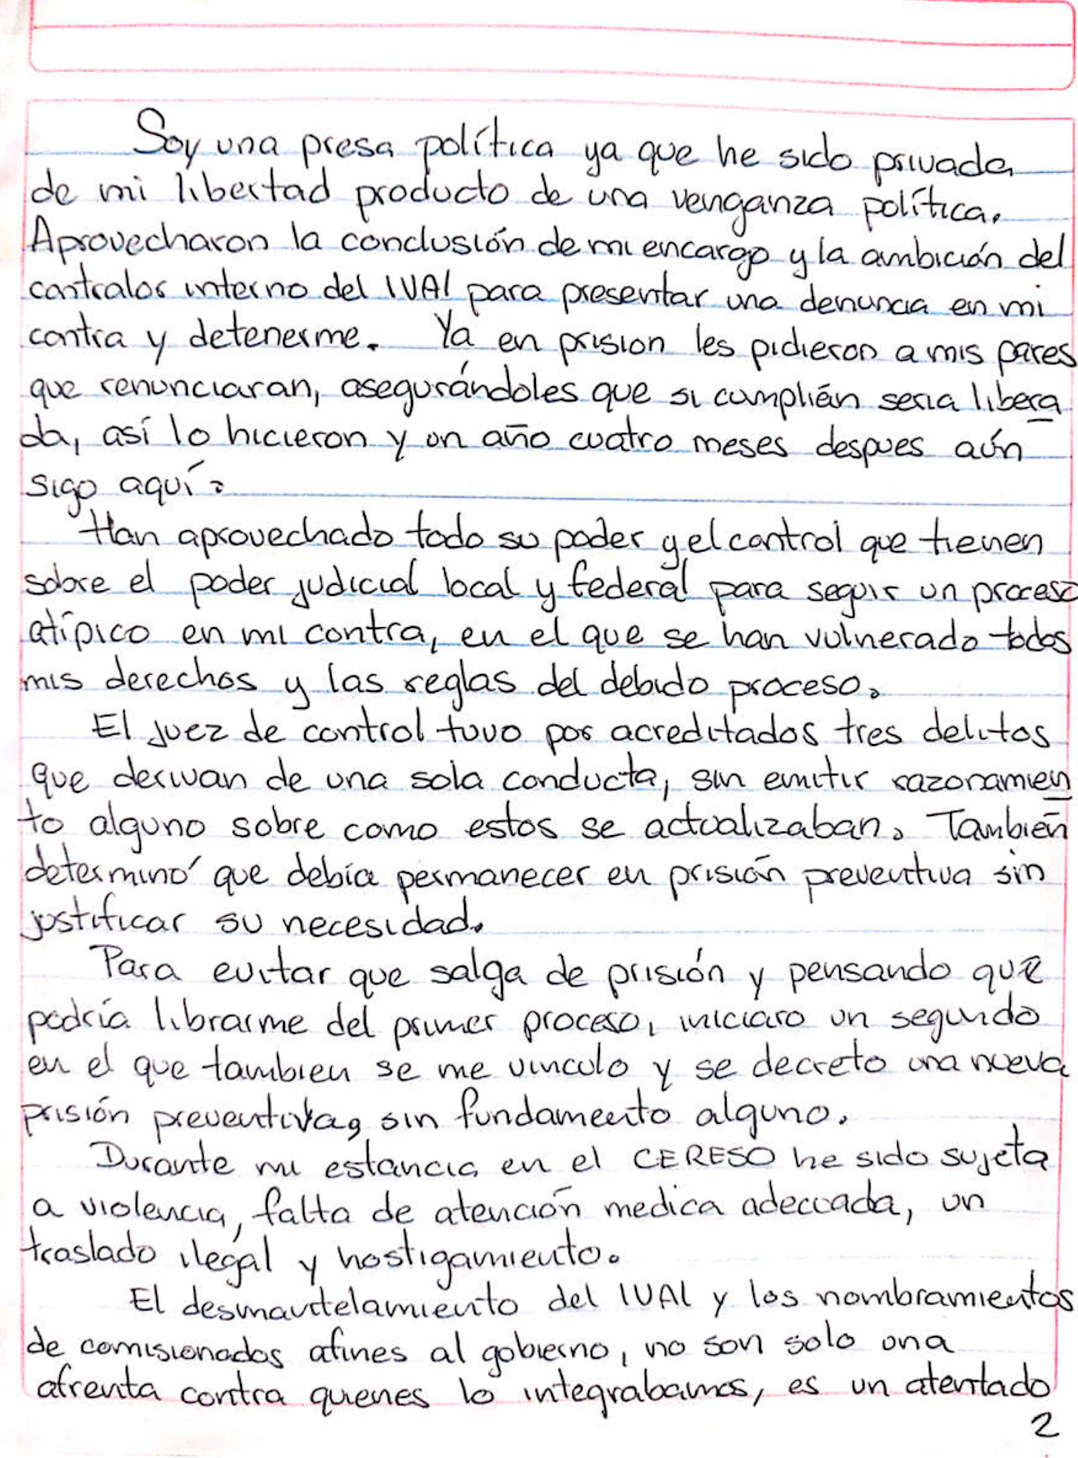 Soy una presa política ya que he sido privada
de mi libertad producto de una venganza política.
Aprovecharon la conclusión de mi encargo y la ambición del
contralor interno del IVAI para presentar una denuncia en mi
contra y detenerme. Ya en prision les pidieron a mis pares
que renunciaran, asegurándoles que si cumplián seria libera
da, así lo hicieron y un año cuatro meses despues aún
sigo aquí.
Han aprovechado todo su poder y el control que tienen
sobre el poder judicial local y federal para seguir un proceso
atípico en mi contra, en el que se han vulnerado todos
mis derechos y las reglas del debido proceso.
El juez de control tuvo por acreditados tres delitos
que derivan de una sola conducta, sin emitir razonamien
to alguno sobre como estos se actualizaban. También
determinó que debía permanecer en prisión preventiva sin
justificar su necesidad.
Para evitar que salga de prisión y pensando que
podría librarme del primer proceso, iniciaro un segundo
en el que tambien se me vinculo y se decreto una nueva
prisión preventiva, sin fundamento alguno.
Durante mi estancia en el CERESO he sido sujeta
a violencia, falta de atención medica adecuada, un
traslado ilegal y hostigamiento.
El desmantelamiento del IVAI y los nombramientos
de comisionados afines al gobierno, no son solo una
afrenta contra quienes lo integrabamos, es un atentado
2